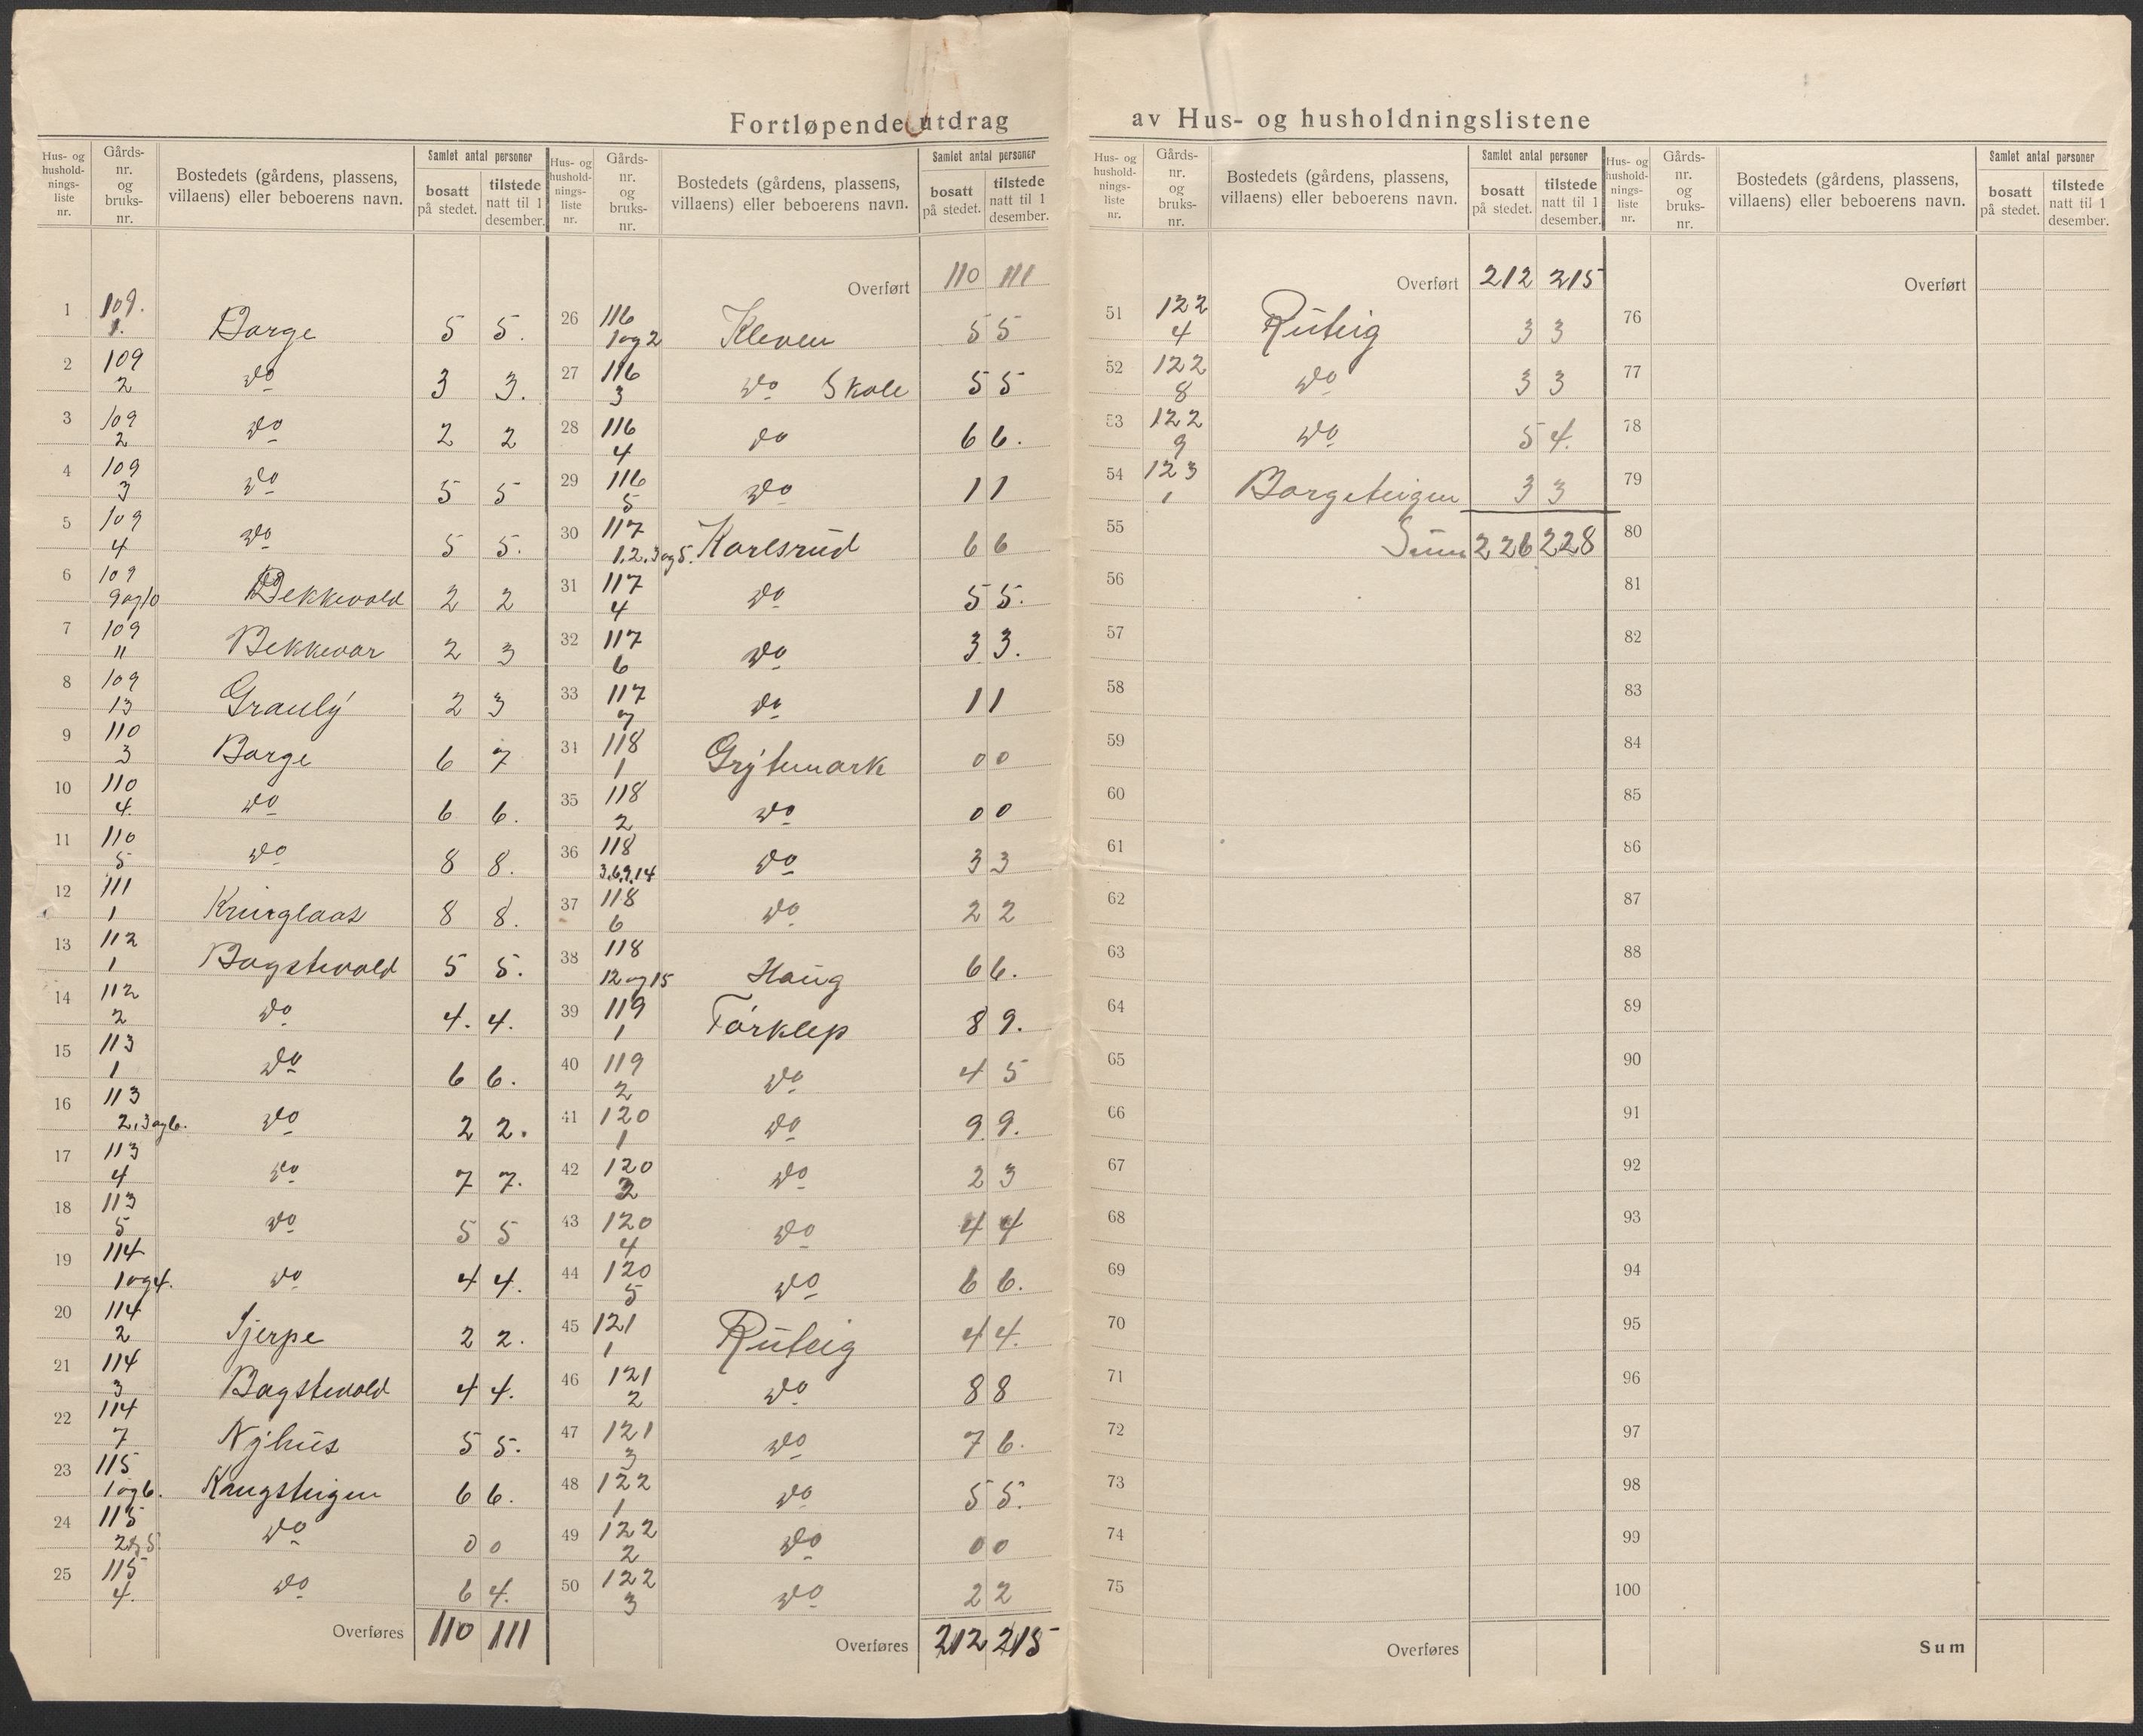 Fortløpende utdrag av Hus- og husholdningslistene
Hus- og husholdnings- liste nr. | Gårds- nr. og bruks- nr. | Bostedets (gårdens, plassens, villaens) eller beboerens navn. | Samlet antal personer | bosatt på stedet. | tilstede natt til 1 desember.
1 109. 1. Borge 5 5.
2 109 2 do 3 3.
3 109 2 do 2 2
4 109 3 do 5 5
5 109 4 do 5 5.
6 109 9 og 10 Bekkevold 2 2
7 109 11 Bekkevar 2 3
8 109 13 Granly 2 3
9 110 3 Borge 6 7
10 110 4. do 6 6.
11 110 5 do 8 8.
12 111 1 8 8.
13 112 1 Bogstevold 5 5.
14 112 2 do 4. 4.
15 113 1 do 6 6.
16 113 2, 3 og 6. do 2 2.
17 113 4 do 7 7.
18 113 5 do 5 5
19 114 1 og 4. do 4 4.
20 114 2 Tjerpe 2 2.
21 114 3 Bogstevold 4 4.
22 114 7 Nyhus 5 5.
23 115 1 og 6. Kongsteigen 6 6.
24 115 2 og 5 do 0 0
25 115 4. do 6 4.
Overføres 110 111
Hus- og hushold- nings- liste nr. | Gårds- nr. og bruks- nr. | Bostedets (gårdens, plassens, villaens) eller beboerens navn. | Samlet antal personer | bosatt på stedet. | tilstede natt til 1 desember.
Overført 110 111
26 116 1 og 2 Kleven 5 5
27 116 3 do Skole 5 5
28 116 4 do 6 6.
29 116 5 do 1 1
30 117 1. 2. 3 og 5. Karlsrud 6 6
31 117 4 do 5 5.
32 117 6 do 3 3.
33 117 7 do 1 1
34 118 1 Grytemark 0 0
35 118 2 do 0 0
36 118 3.6.9.14 do 3 3
37 118 6 do 2 2
38 118 12 og 15 Haug 6 6.
39 119 1 Torklep 8 9.
40 119 2 do 4 5
41 120 1 do 9 9.
42 120 2 do 2 3
43 120 4 do 4 4
44 120 5 do 6 6.
45 121 1 Ruteig 4 4.
46 121 2 do 8 8
47 121 3 do 7 6.
48 122 1 do 5 5.
49 122 2 do 0 0
50 122 3 do 2 2
Overføres 212 215
Hus- og hushold- nings- liste nr. | Gårds- nr. og bruks- nr. | Bostedets (gårdens, plassens, villaens) eller beboerens navn. | Samlet antal personer | bosatt på stedet. | tilstede natt til 1 desember.
Overført 212 215
51 122 4 Ruteig 3 3
52 122 8 do 3 3
53 122 9 do 5 4.
54 123 1 Borgeteigen 3 3
55 Sum 226 228
56
57
58
59
60
61
62
63
64
65
66
67
68
69
70
71
72
73
74
75
Overføres
Hus- og hushold- nings- liste nr. | Gårds- nr. og bruks- nr. | Bostedets (gårdens, plassens, villaens) eller beboerens navn. | Samlet antal personer | bosatt på stedet. | tilstede natt til 1 desember.
Overført
76
77
78
79
80
81
82
83
84
85
86
87
88
89
90
91
92
93
94
95
96
97
98
99
100
Sum